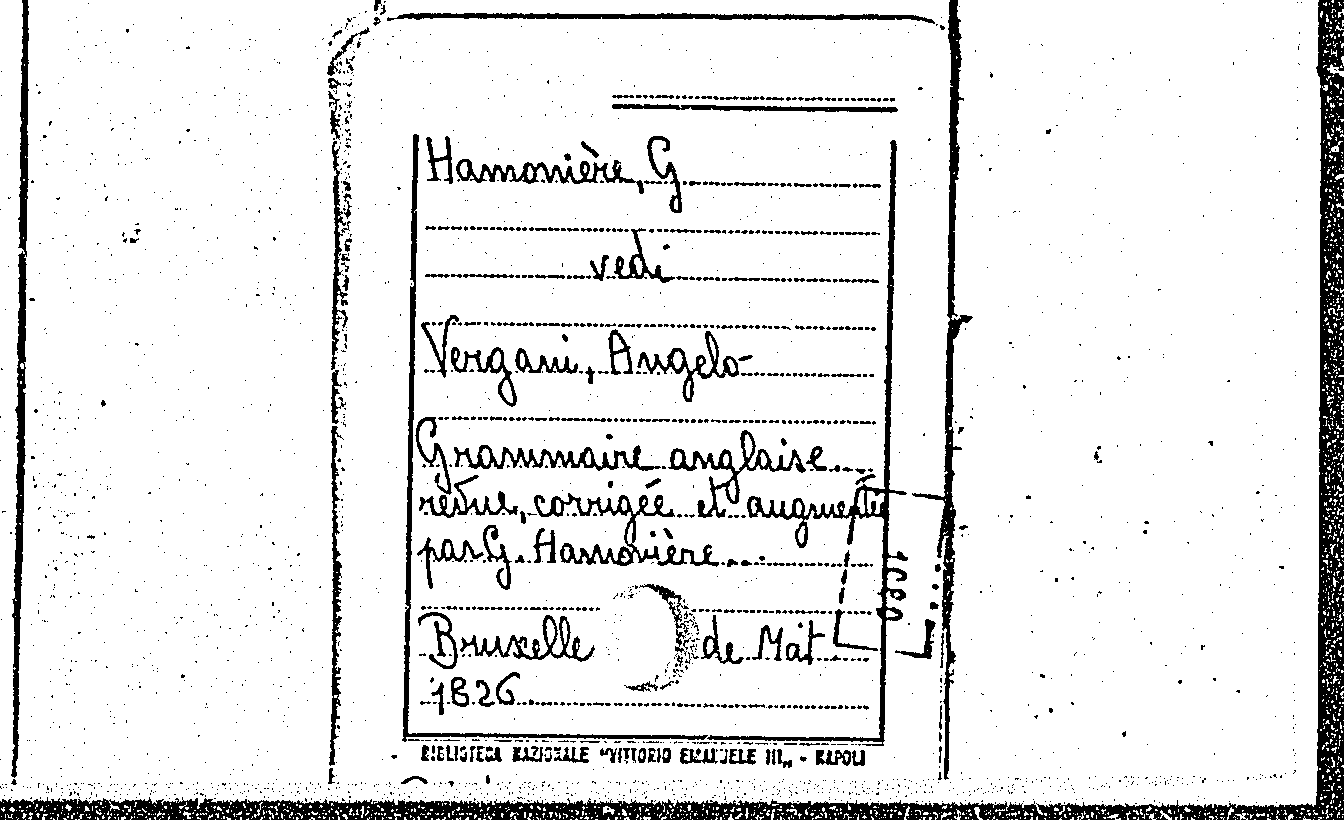 Hamonière, G
vedi
Vergani, Angelo
Grammaire anglaise...
revue, corrigée et augmentée
par G. Hamonière...
Bruxelle de Mat
1826.
BIBLIOTECA NAZIONALE "VITTORIO EMANUELE III„ - NAPOLI